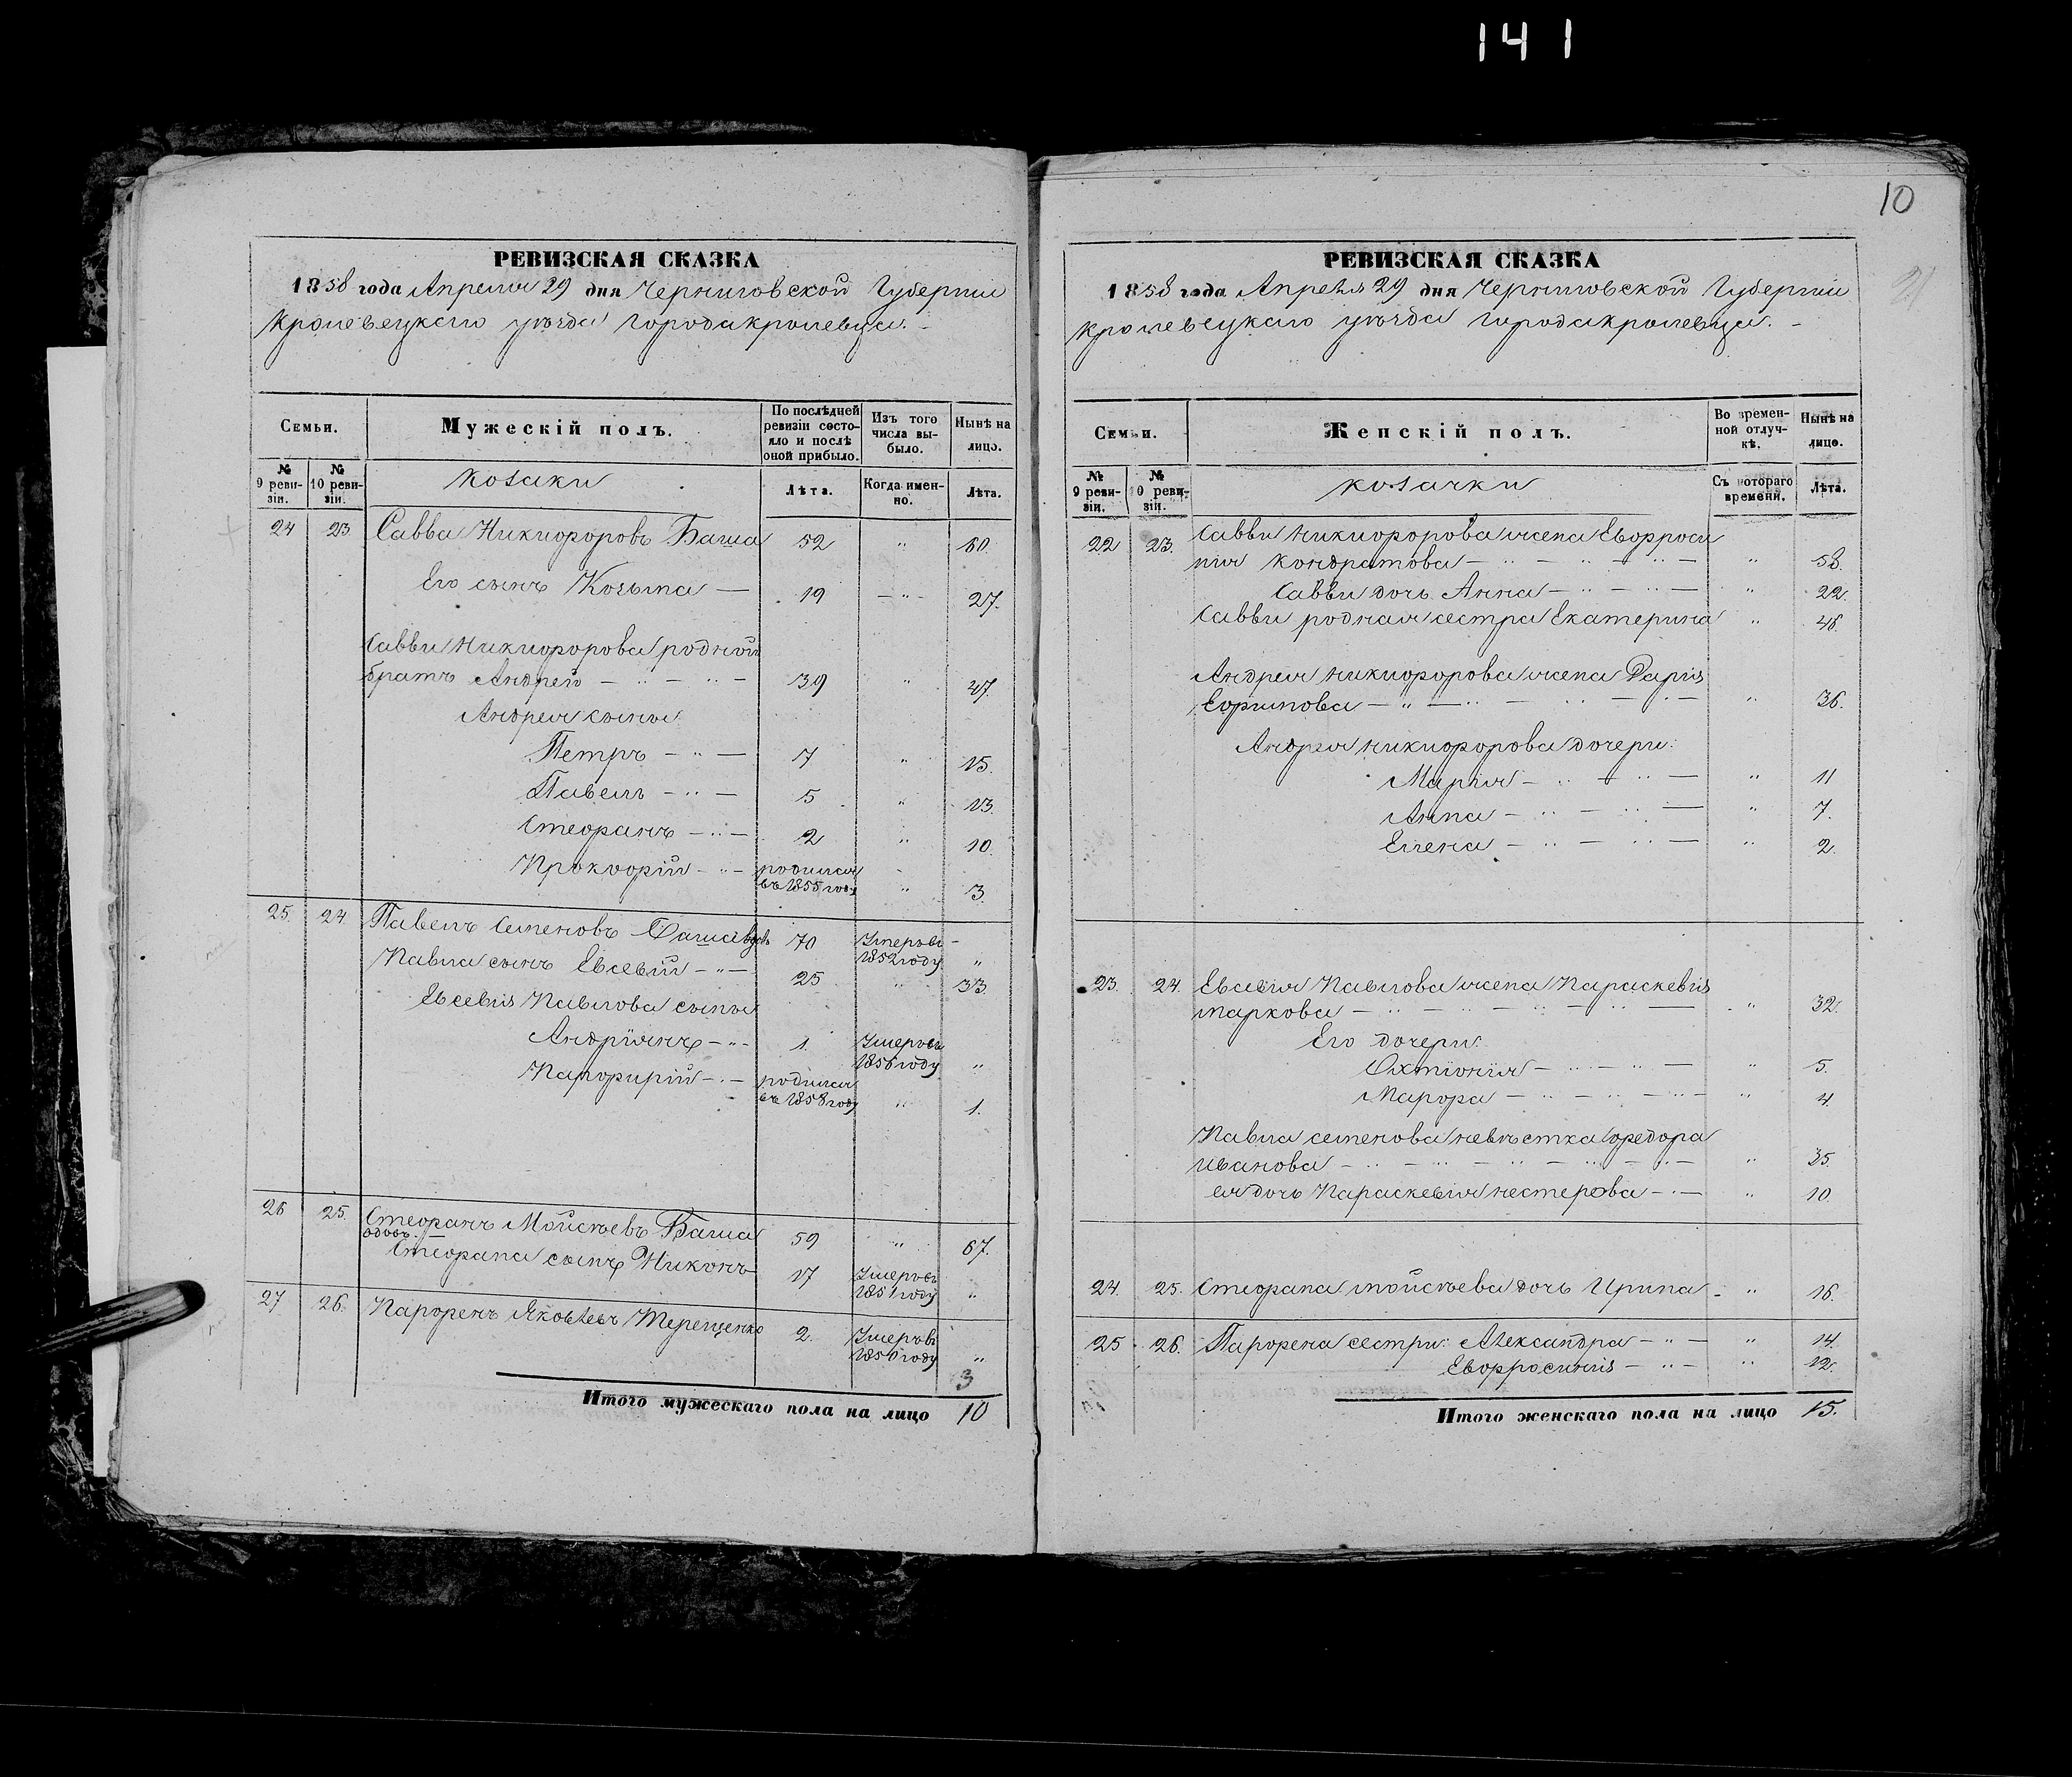 141
10
21
РЕВИЗСКАЯ СКАЗКА
1858 года Апреля 29 дня Черниговской Губернии
Кролевецкаго уезда города Кролевца.
Семьи.
Мужескій полъ.
По послѣдней ревизіи состояло и послѣ оной прибыло.
Изъ того числа выбыло.
Нынѣ на лицо.
№ 9 ревизіи.
№ 10 ревизіи.
Козаки
Лѣта.
Когда именно.
Лѣта.
24 23 Савва Никифоровъ Баша 52 " 60.
Его сынъ Козьма — 19 — " — 27.
Савви Никифорова родной
братъ Андрей — " — " — 39 " 47.
Андрея сыны
Петръ — " — 7 " 15.
Павелъ — " — 5 " 13.
Стефанъ — " — 2 " 10.
Прокофій — " — родился въ 1855 году " 3.
25. 24. Павелъ Семеновъ 70 Умеръ въ 1852 году "
Павла сынъ Евсевій — " — 25 " 33.
Евсевія Павлова сыны
Андріянъ — " — 1. Умеръ въ 1856 году "
Парфирій — " — родился въ 1858 году " 1.
26 25. Стефанъ Мойсѣевъ Баша 59 " 67.
вдовъ.
Стефана сынъ Никонъ 17 Умеръ въ 1851 году "
27 26. Парфенъ Яковлевъ Терещенко 2. Умеръ въ 1856 году "
3
Итого мужескаго пола на лицо 10
РЕВИЗСКАЯ СКАЗКА
1858 года Апреля 29 дня Черниговской Губернии
Кролевецкаго уезда города Кролевца.
Семьи.
Женскій полъ.
Во временной отлучкѣ.
Нынѣ на лицо.
№ 9 ревизіи.
№ 10 ревизіи.
Козачки
Съ котораго времени.
Лѣта.
22 23. Савви Никифорова жена Евфроси
нія Кондратова — " — " — " — " 58.
Савви дочь Анна — " — " — " 22.
Савви родная сестра Екатерина " 46.
Андрея Никифорова жена Дарія
Ефимова — " — " — " — " 36.
Андрея Никифорова дочери:
Марія — " — " — " 11
Анна — " — " — " 7.
Елена — " — " — " 2.
23. 24. Евсевія Павлова жена Параскевія
Маркова — " — " — " — " — " 32.
Его дочери:
— " — " — " 5.
Марфа — " — " — " — " 4.
Павла Семенова невѣстка Федора
Иванова — " — " — " — " — " 35.
ея дочь Параскевія Нестерова — " — " 10.
24. 25. Стефана Мойсѣева дочь Ирина — " 16.
25 26. Парфена сестри: Александра — " — " 14.
Евфросинія — " — " 12.
Итого женскаго пола на лицо 15.